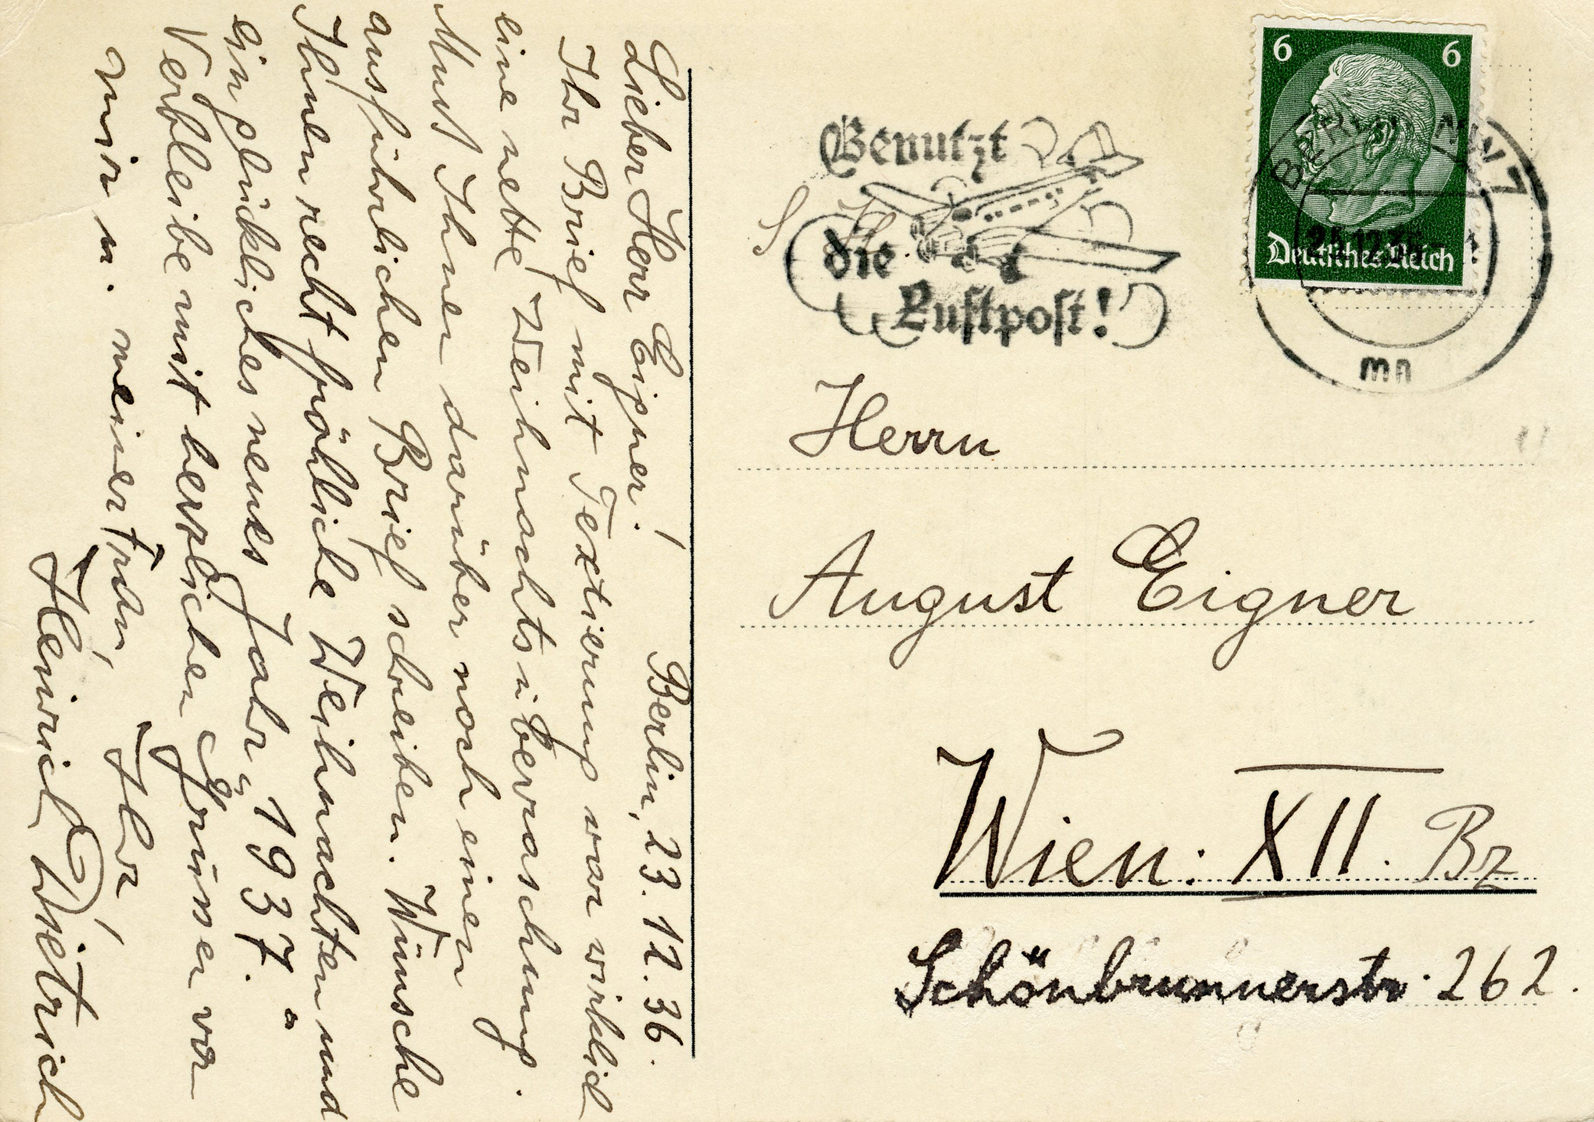 Berlin, 23.12.36.
Lieber Herr Eigner!
Ihr Brief mit Textierung war wirklich
eine nette Weihnachtsüberraschung.
Muss Ihnen darüber noch einen
ausführlichen Brief schreiben. Wünsche
Ihnen recht fröhliche Weihnachten und
ein glückliches neues Jahr „1937."
Verbleibe mit herzlichen Grüssen von
mir u. meiner Frau,
Ihr
Heinrich Dietrich
Benutzt
die
Luftpost!
6 6
Deutsches Reich
BERLIN NW 7
mn
Herrn
August Eigner
Wien: XII. Bz
Schönbrunnerstr. 262.